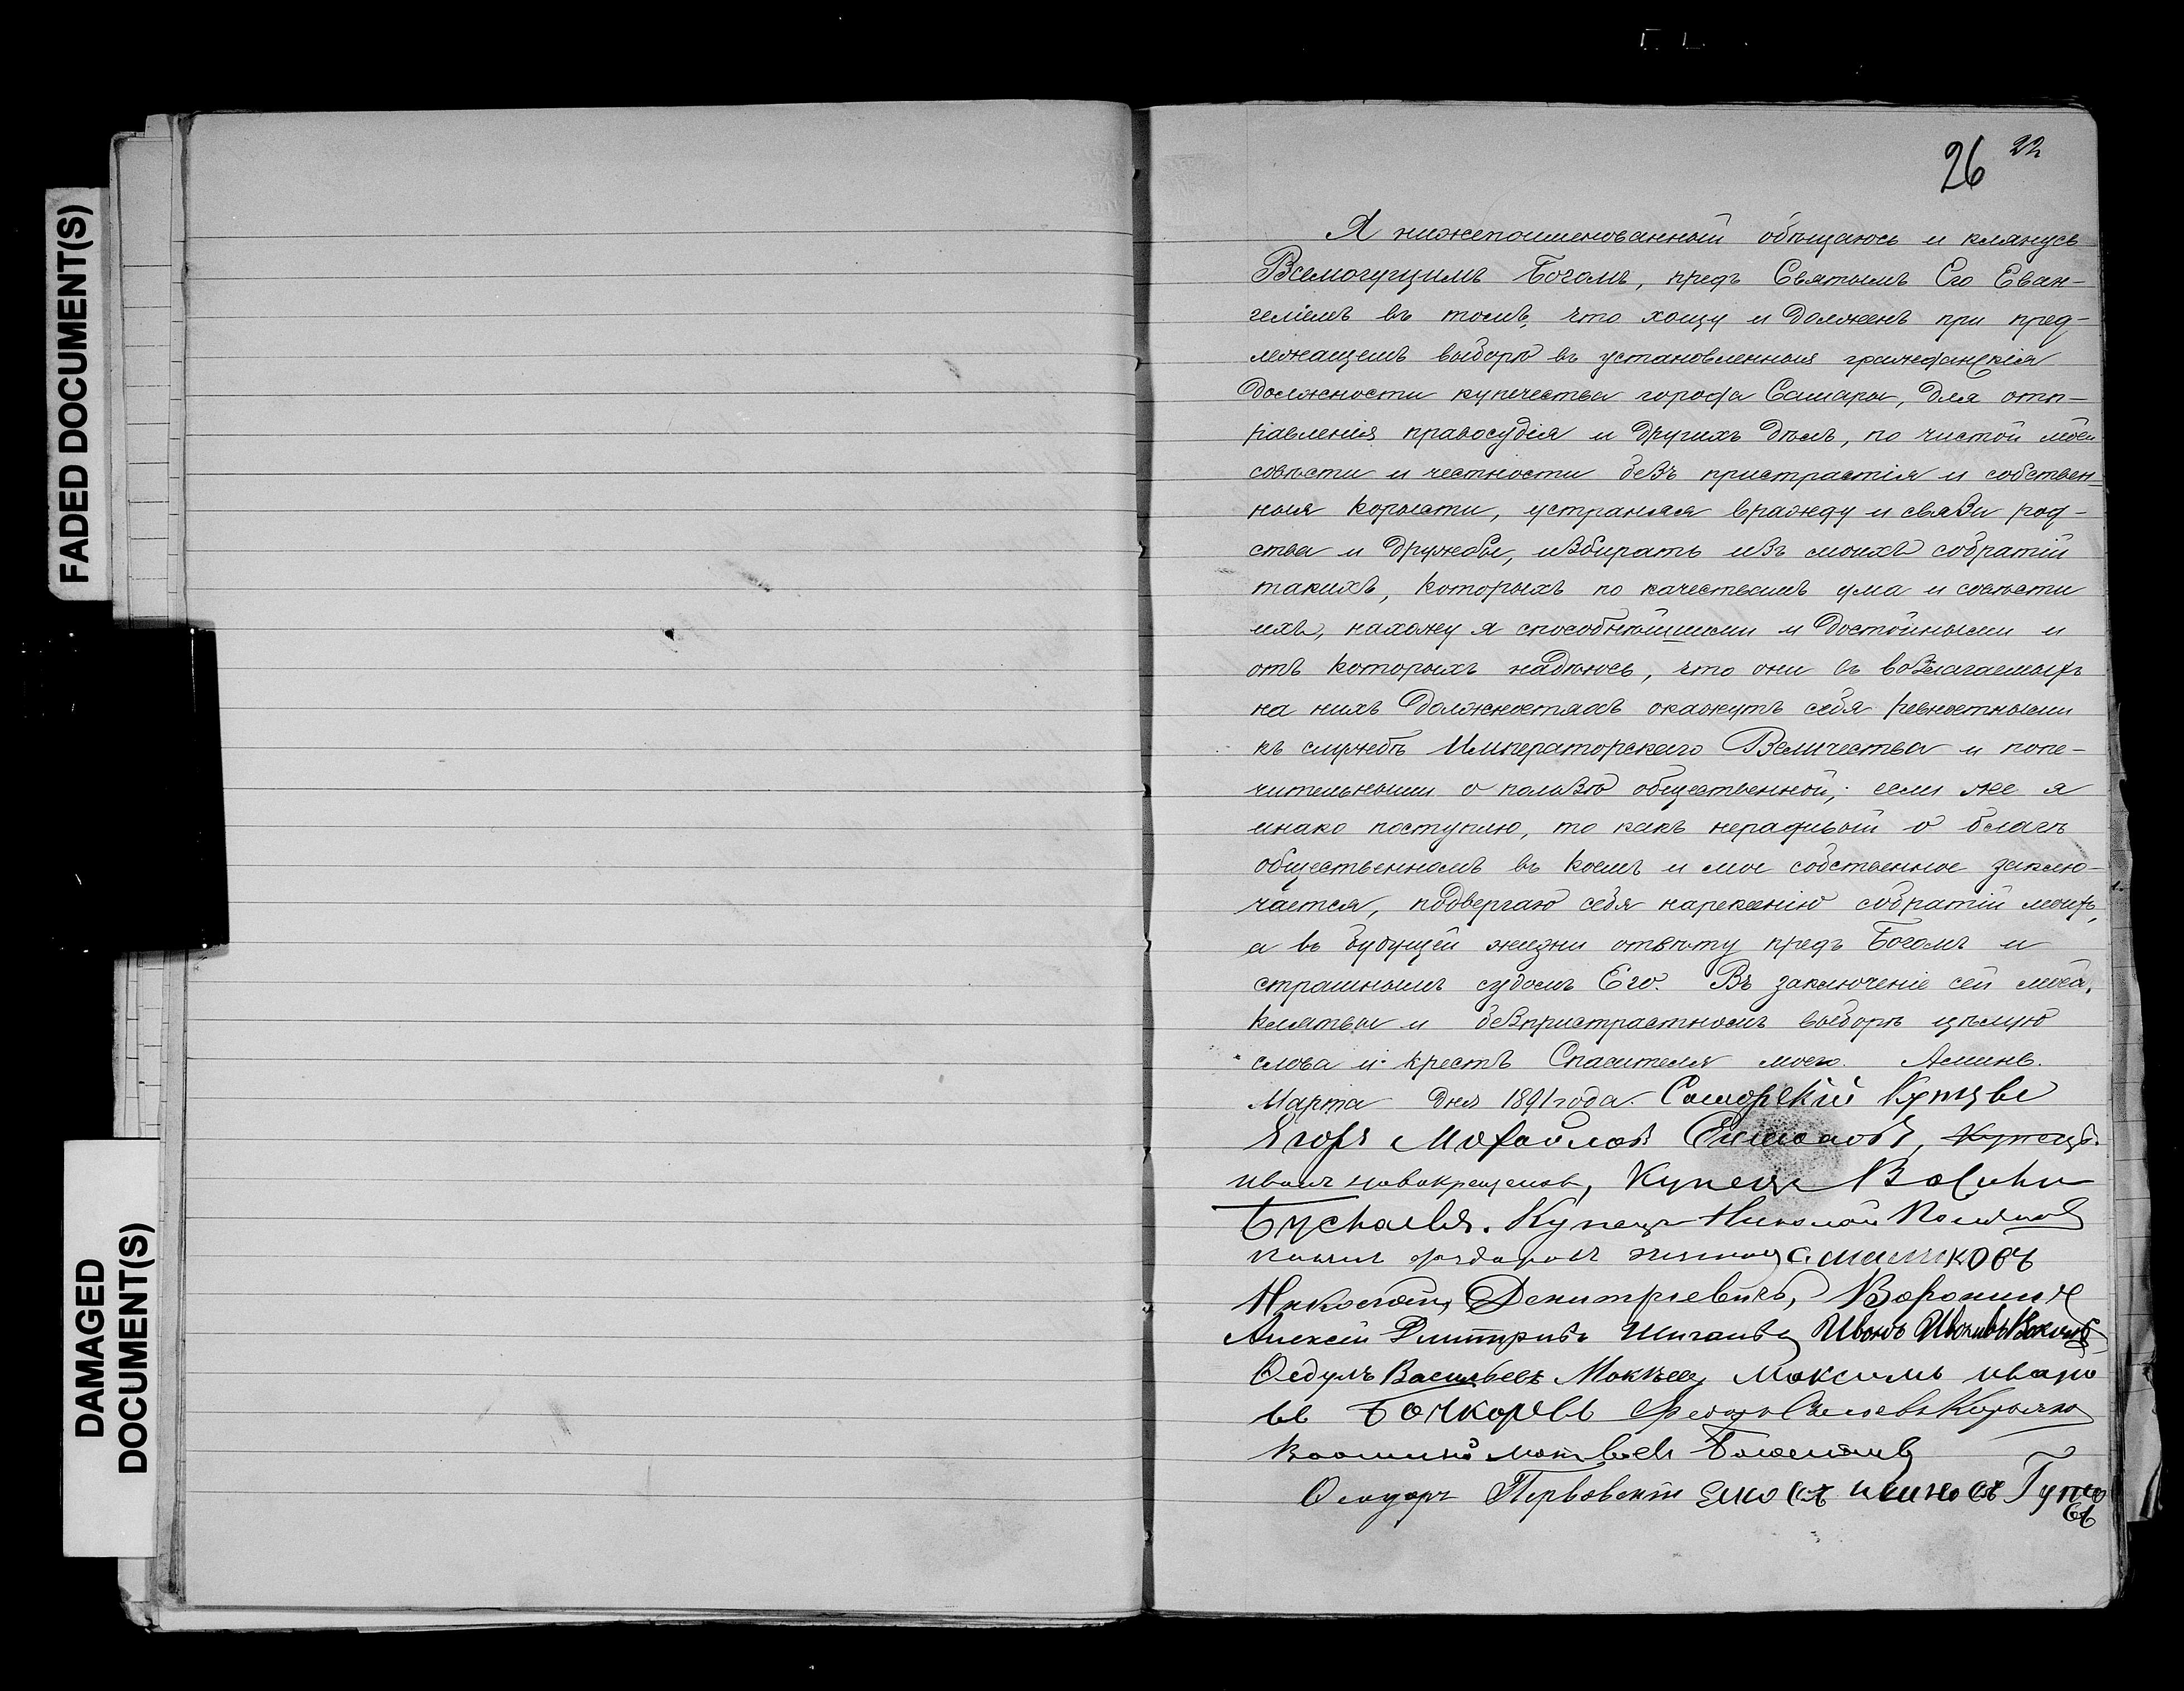 FADED DOCUMENT(S)
DAMAGED
DOCUMENT(S)
26 22
Я нижепоименованный обѣщаюсь и клянусь
Всемогущимъ Богомъ, предъ Святымъ Его Еван-
геліемъ въ томъ, что хощу и долженъ при пред-
лежащемъ выборѣ въ установленныя гражданскія
должности купечества города Самары, для отп-
равленія правосудія и другихъ дѣлъ, по чистой моей
совѣсти и честности безъ пристрастія и собствен-
ныя корысти, устраняя вражду и связи род-
ства и дружбы, избирать изъ моихъ собратій
такихъ, которыхъ по качествамъ ума и совѣсти
ихъ, нахожу я способнѣйшими и достойными и
отъ которыхъ надѣюсь, что они въ возлагаемыхъ
на нихъ должностяхъ окажутъ себя ревностными
къ службѣ Императорскаго Величества и попе-
чительными о пользѣ общественной; если же я
инако поступлю, то какъ нерадивый о благѣ
общественномъ въ коемъ и мое собственное заклю-
чается, подвергаю себя нареканію собратій моихъ,
а въ будущей жизни отвѣту предъ Богомъ и
страшнымъ судомъ Его. Въ заключеніе сей моей
клятвы и безпристрастномъ выборѣ цѣлую
слова и крестъ Спасителя моего. Аминь.
Марта дня 1891 года. Саморскій Купцы
Ягоръ Мохойловъ, Купецъ
Иванъ Новокрещеновъ, Купецъ
Купецъ Николай
Николай Демитріевичь, Воронин
Алексѣй Дмитріевъ Иванъ
Ѳедулъ Васильевъ Мокѣев Максимъ ивано
въ Бочкоревъ
матвѣевъ
Первовскій